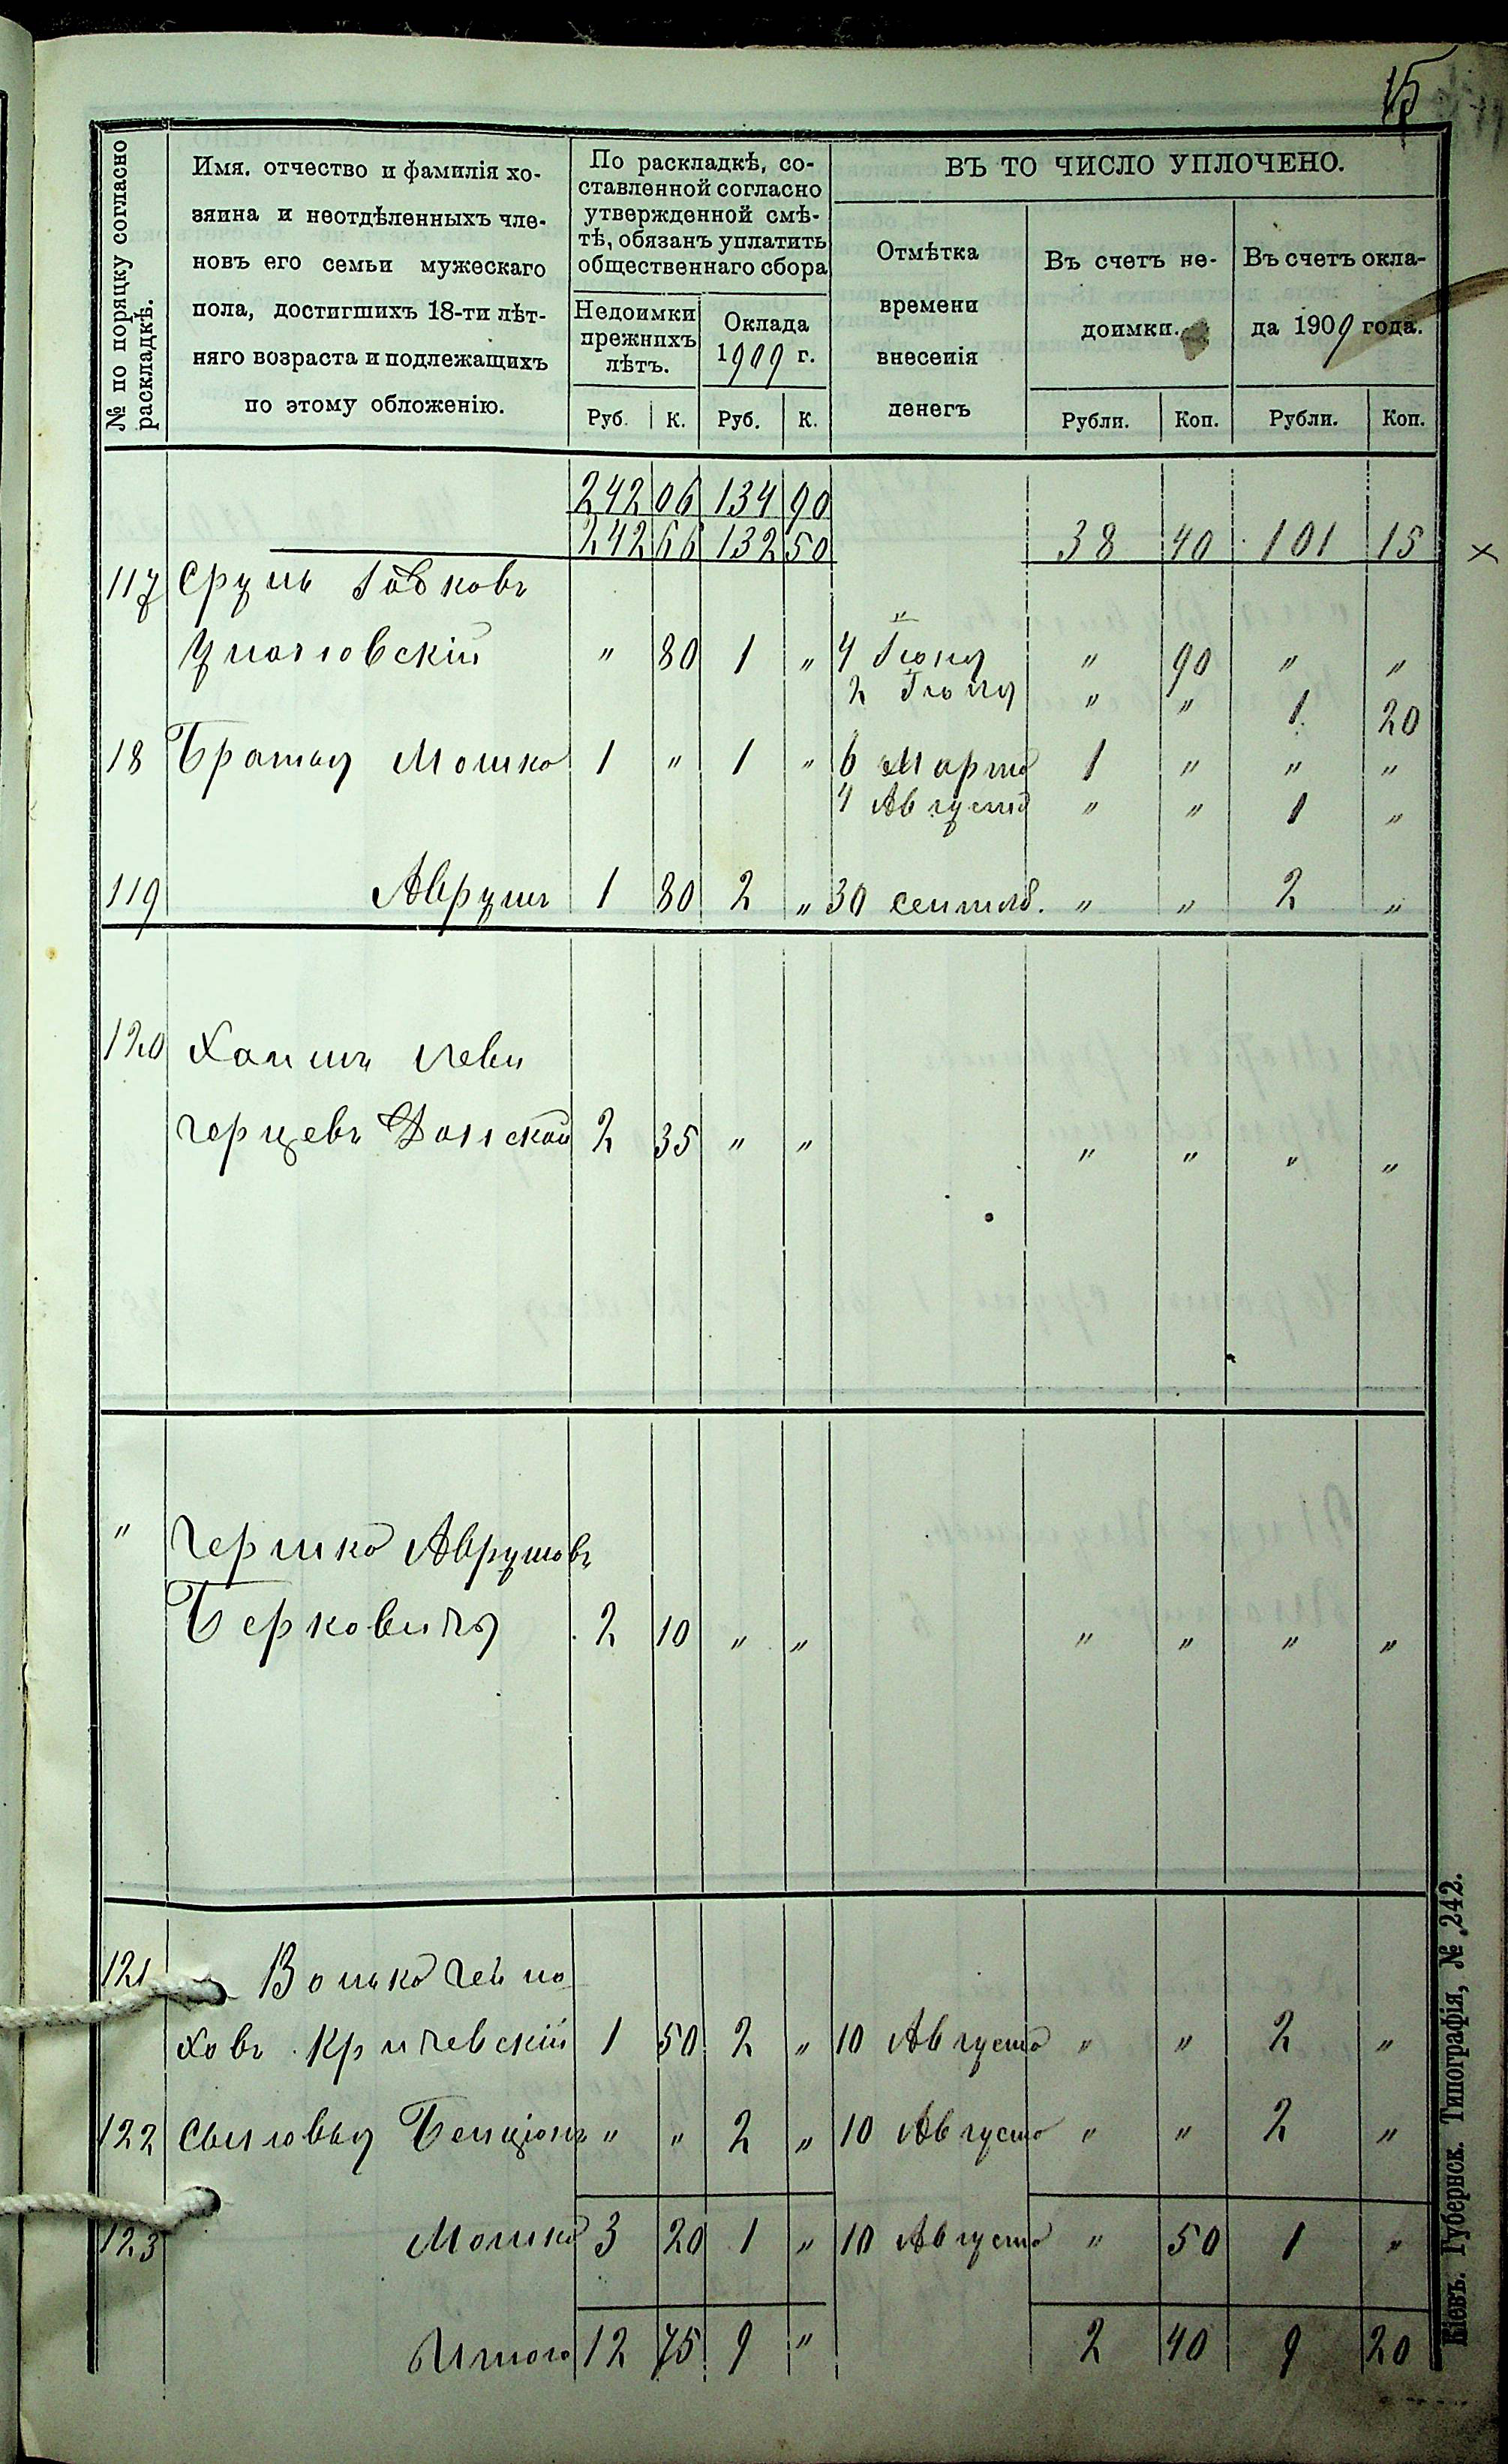 15
№ по поряцку согласно раскладкѣ.
Имя. отчество и фамилія хо-
зяина и неотдѣленныхъ чле-
новъ его семьи мужескаго
пола, достигшихъ 18-ти лѣт-
няго возраста и подлежащихъ
по этому обложенію.
По раскладкѣ, со-
ставленной согласно
утвержденной смѣ-
тѣ, обязанъ уплатить
общественнаго сбора
Недоимки
прежнихъ
лѣтъ.
Оклада
1909 г.
ВЪ ТО ЧИСЛО УПЛОЧЕНО.
Отмѣтка
времени
внесенія
денегъ
Въ счетъ не-
доимки.
Въ счетъ окла-
да 1909 года.
Руб. К. Руб. К. Рубли. Коп. Рубли. Коп.
242 06 134 90
242 66 132 50 38 40 101 15 ×
117 Сруль
" 80 1 " 4 Іюня " 90 " "
2 " " 1 20
18 Братья Мошко 1 " 1 " 6 Марта 1 " " "
4 Августа " " 1 "
119 Аврумъ 1 80 2 " 30 сентяб. " " 2 "
120 Хаимъ Леви
Герцевъ Донской 2 35 " " " " " "
" Гершко Аврумовъ
Берковичъ 2 10 " " " " " "
121 Волько Гейно
ховъ Кричевскій 1 50 2 " 10 Августа " " 2 "
122 Сыновья Бенціонъ " " 2 " 10 Августа " " 2 "
123 Мошко 3 20 1 " 10 Августа " 50 1 "
Итого 12 75 9 " 2 40 9 20
Кіевъ. Губернск. Типографія, № 242.